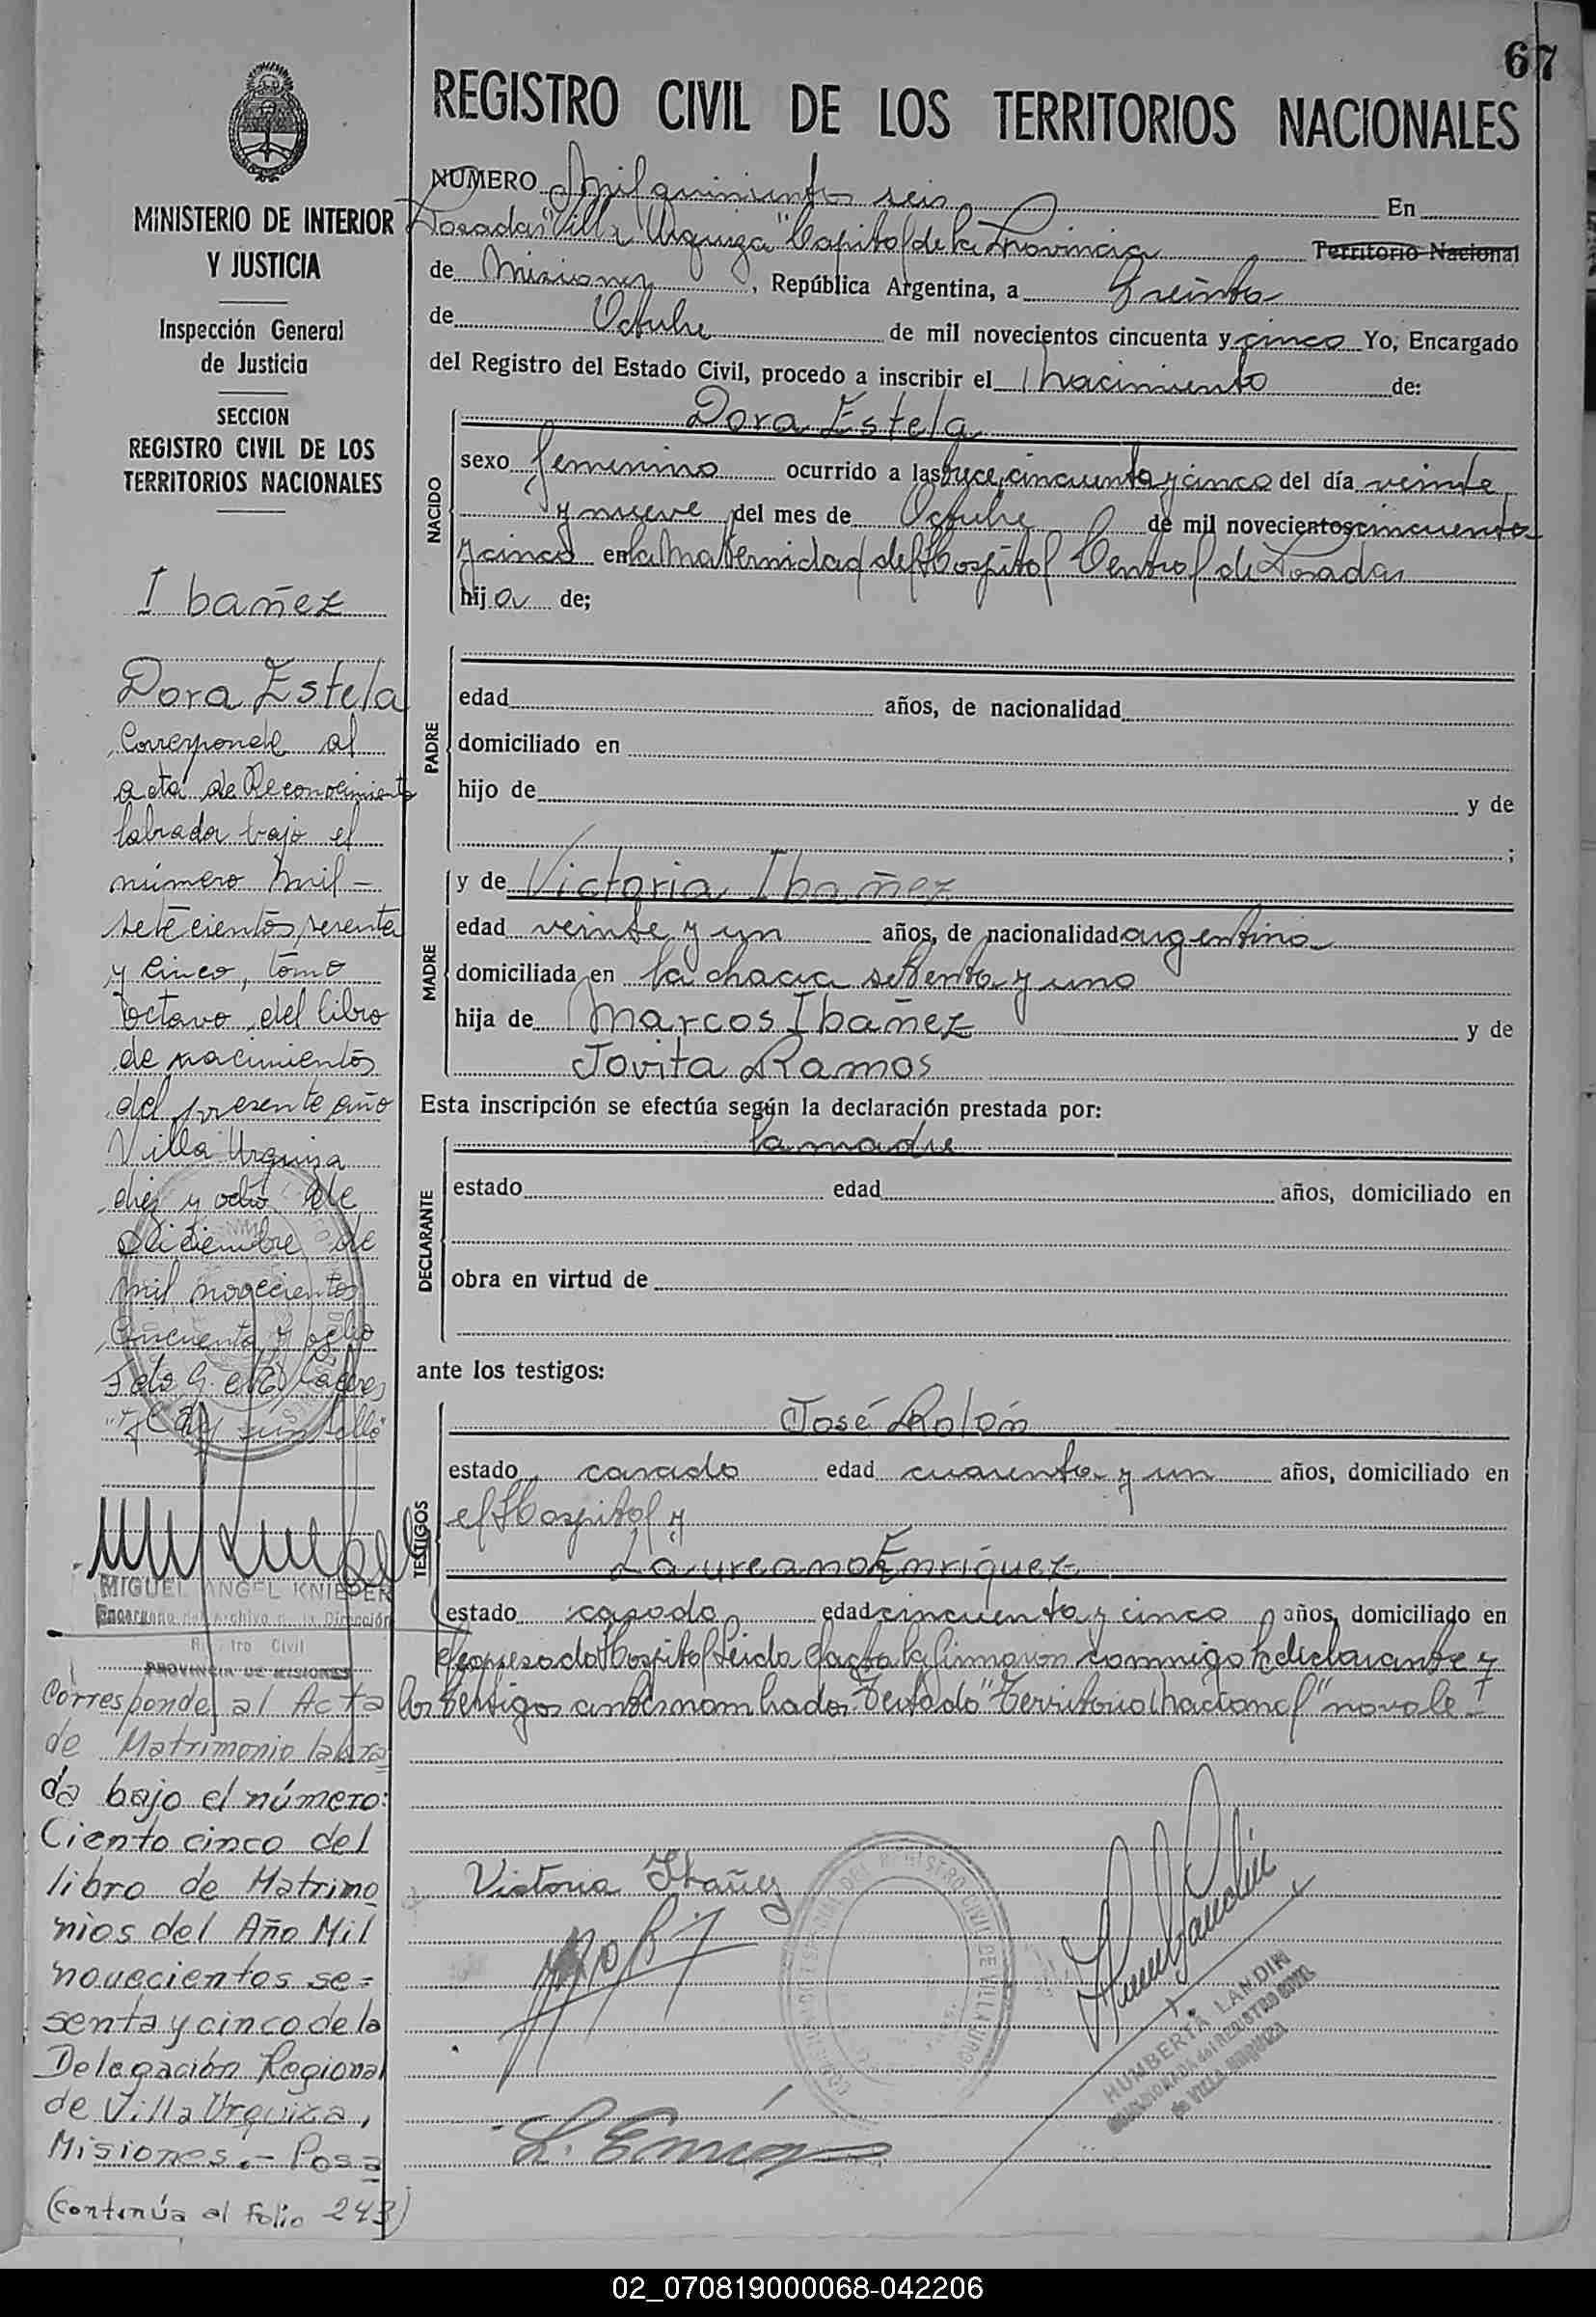 67
REGISTRO CIVIL DE LOS TERRITORIOS NACIONALES
MINISTERIO DE INTERIOR
Y JUSTICIA
Inspección General
de Justicia
SECCION
REGISTRO CIVIL DE LOS
TERRITORIOS NACIONALES
Ibañez
Dora Estela
Corresponde al
acta de Reconocimiento
labrada bajo el
número mil-
setecientos, sesenta
y cinco, tomo
octavo, del libro
de nacimientos
del presente año
Villa Urquiza
diez y ocho de
Diciembre de
mil novecientos
cincuenta y ocho
MIGUEL ANGEL KNIEPER
Encargado del Archivo de la Dirección
Registro Civil
PROVINCIA DE MISIONES
Corresponde al Acta
de Matrimonio labra
da bajo el número:
Ciento cinco del
libro de Matrimo
nios del Año Mil
novecientos se=
senta y cinco de la
Delegación Regional
de Villa Urquiza,
Misiones.- Posa
(Continúa al Folio 243)
NUMERO Mil quinientos seis En
Posadas "Villa Urquiza" Capital de la Provincia Territorio Nacional
de Misiones, República Argentina, a Treinta
de Octubre de mil novecientos cincuenta y cinco Yo, Encargado
del Registro del Estado Civil, procedo a inscribir el nacimiento de:
NACIDO
Dora Estela
sexo femenino ocurrido a las trece, cincuenta y cinco del día veinte
y nueve del mes de Octubre de mil novecientos cincuenta
y cinco en la Maternidad del Hospital Central de Posadas
hija de;
PADRE
edad años, de nacionalidad
domiciliado en
hijo de y de
;
MADRE
y de Victoria Ibañez
edad veinte y un años, de nacionalidad argentina
domiciliada en la chacra setenta y uno
hija de Marcos Ibañez y de
Jovita Ramos
Esta inscripción se efectúa según la declaración prestada por:
DECLARANTE
la madre
estado edad años, domiciliado en
obra en virtud de
ante los testigos:
TESTIGOS
José Rolón
estado casado edad cuarenta y un años, domiciliado en
el Hospital y
Laureano Enríquez
estado casado edad cincuenta y cinco años, domiciliado en
el expresado Hospital Leida el acta la firmaron conmigo la declarante y
los testigos antes nombrados Testado "Territorio Nacional" no vale.-
Victoria Ibañez
L. Enriq
HUMBERTA LANDIN
ENCARGADA del REGISTRO CIVIL
de VILLA URQUIZA
02_070819000068-042206